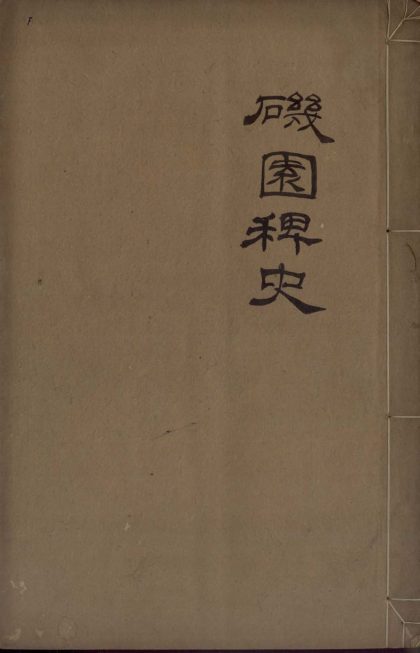 磯園稗史